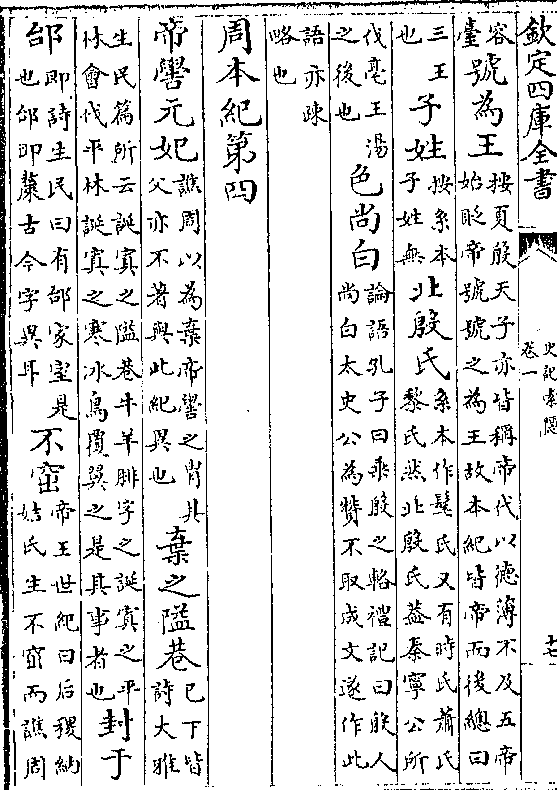 欽定四庫全書
史記索隱
卷一
十七
容
臺
號為王
按夏殷天子亦皆稱帝代以德薄不及五帝
始貶帝號號之為王故本紀皆帝而後總曰
三王
也
子姓
按系本
子姓無
北殷氏
系本作髦氏又有時氏蕭氏
黎氏然北殷氏蓋秦寧公所
伐亳王湯
之後也
色尚白
論語孔子曰乘殷之輅禮記曰殷人
尚白太史公為贊不取成文遂作此
語亦疎
略也
周本紀第四
帝嚳元妃
譙周以為棄帝嚳之胄其
父亦不著與此紀異也
棄之隘巷
已下皆
詩大雅
生民篇所云誕寘之隘巷牛羊腓字之誕寘之平
林會伐平林誕寘之寒冰鳥覆翼之是其事者也
封于
邰
即詩生民曰有邰家室是
也邰即斄古今字異耳
不窋
帝王世紀曰后稷納
姞氏生不窋而譙周